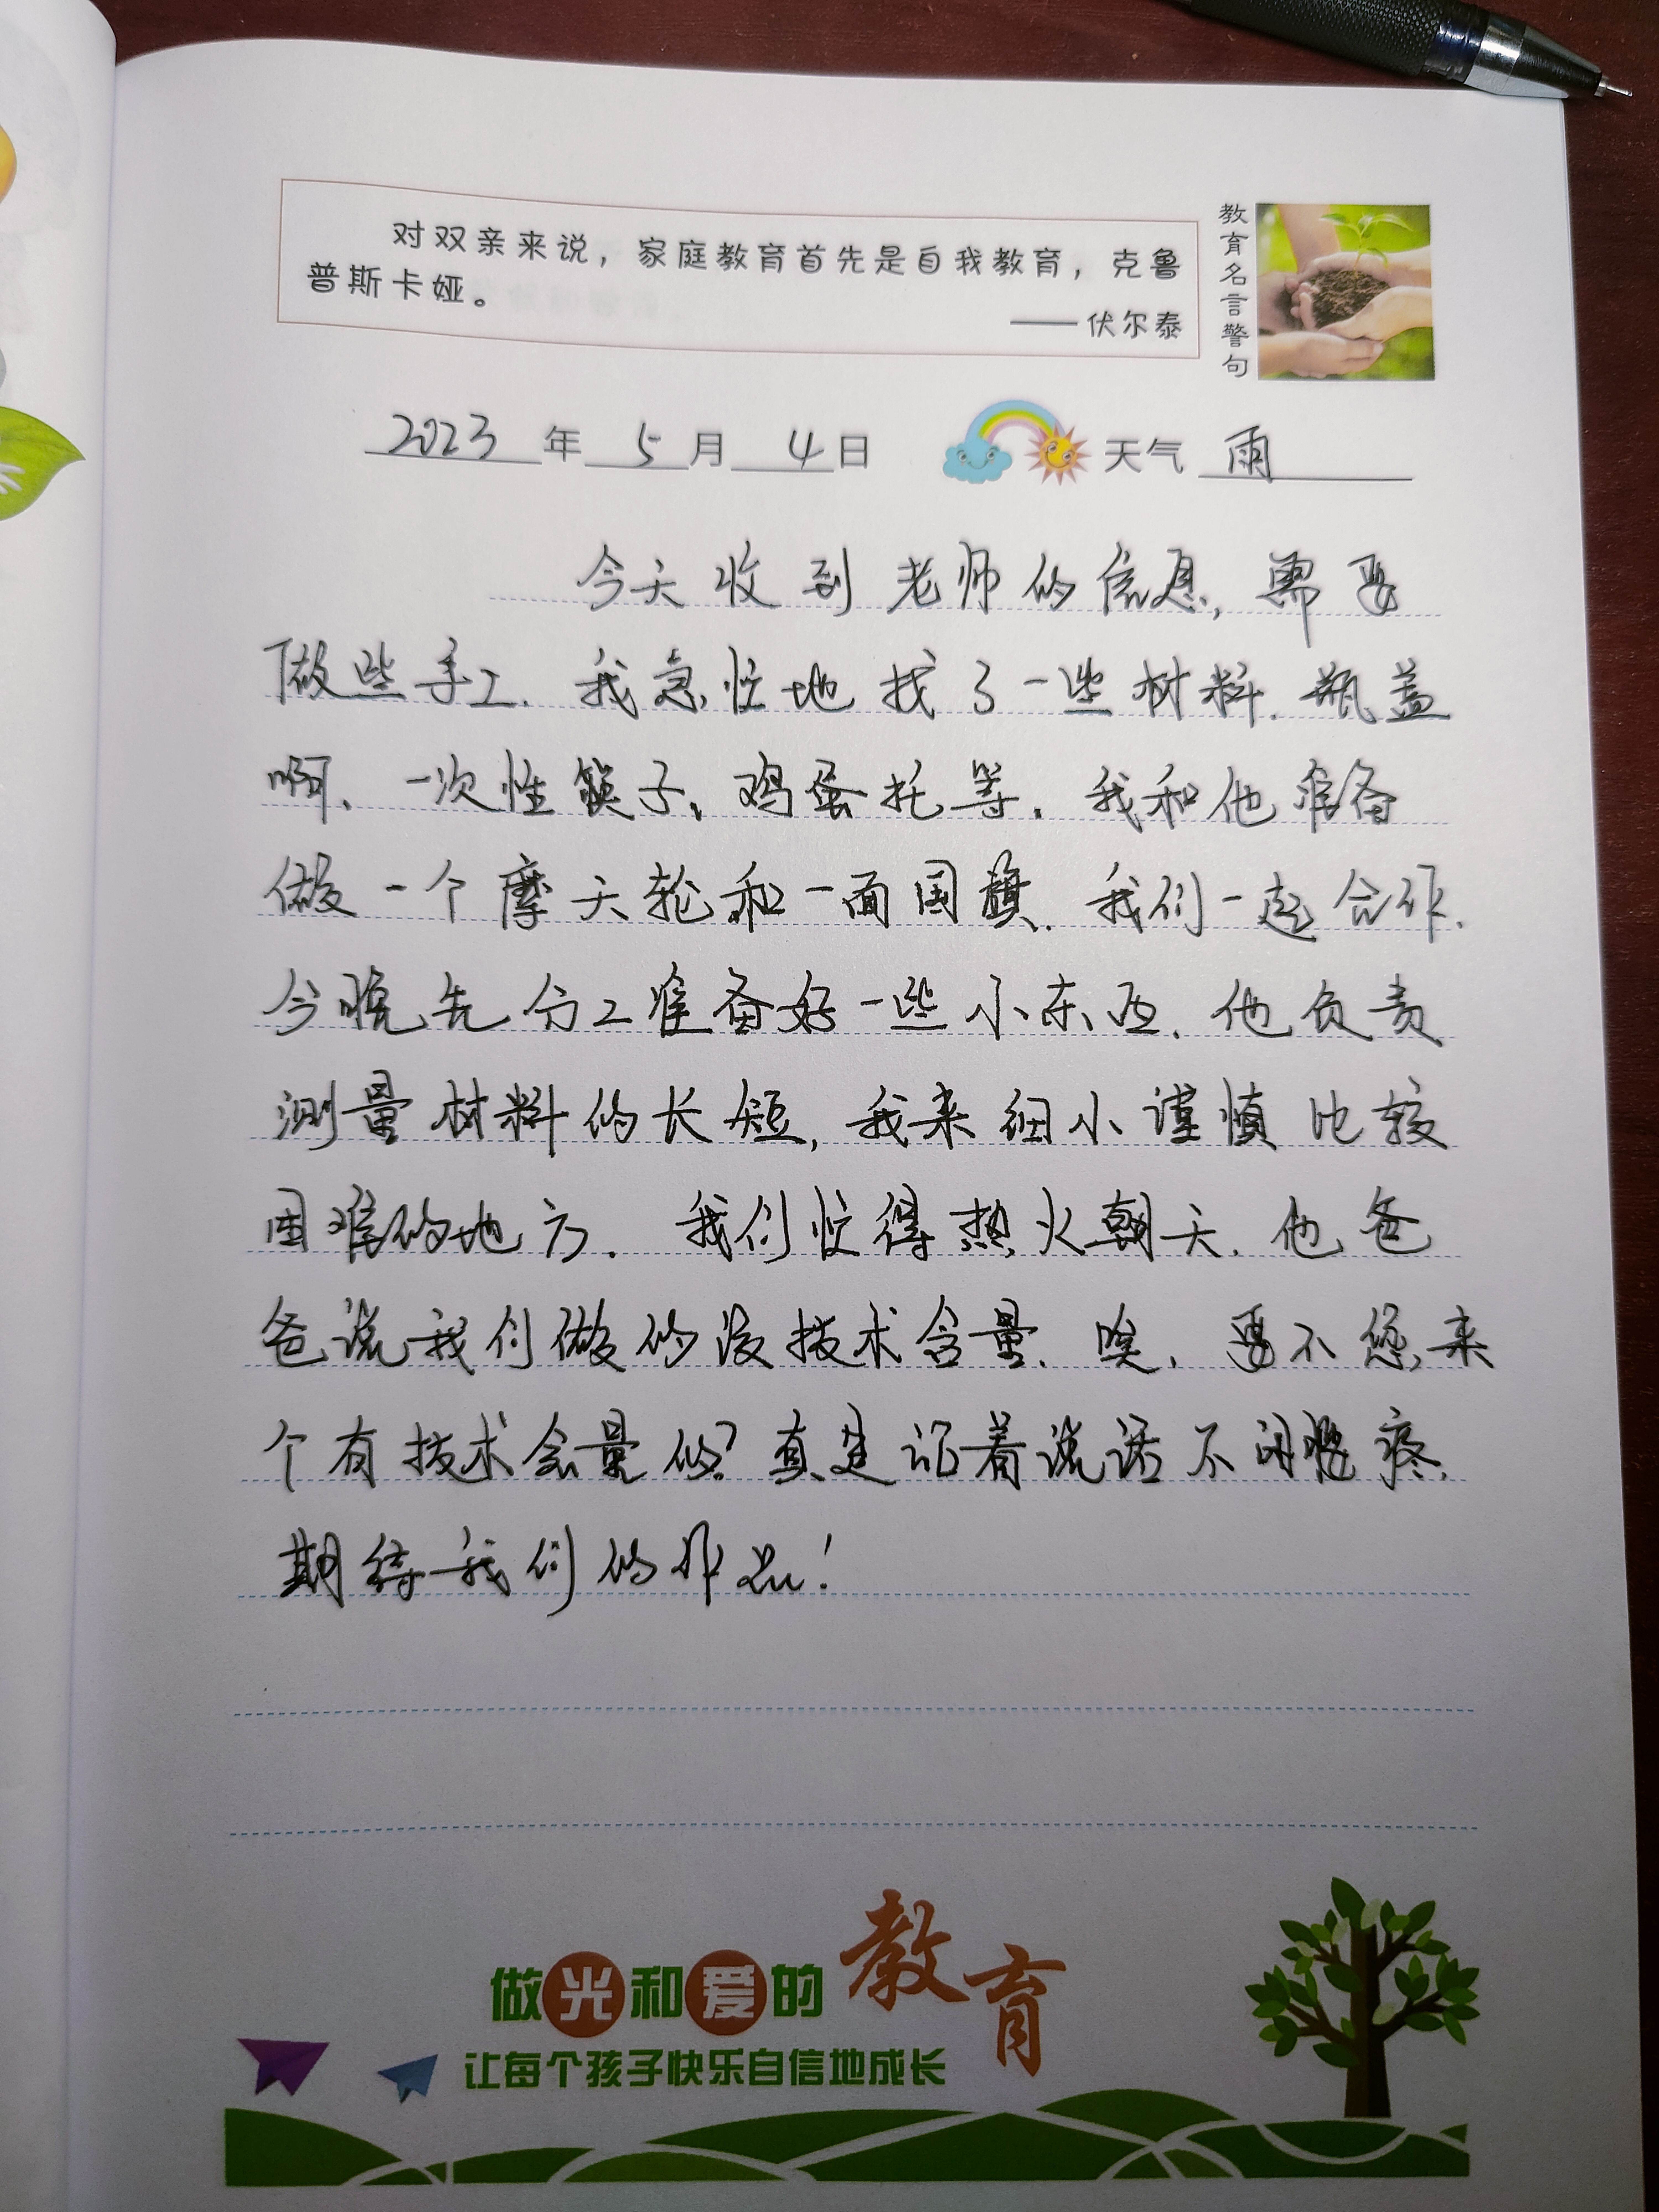 对双亲来说，家庭教育首先是自我教育，克鲁
普斯卡娅。
——伏尔泰
教育名言警句
2023年5月4日 天气 雨
今天收到老师的信息，需要
做些手工．我急忙地找了一些材料．瓶盖
啊、一次性筷子、鸡蛋托等．我和他准备
做一个摩天轮和一面国旗．我们一起合作．
今晚先分工准备好一些小东西．他负责
测量材料的长短，我来细小谨慎比较
困难的地方．我们忙得热火朝天．他爸
爸说我们做的没技术含量．唉，要不您来
个有技术含量的？真是站着说话不闲腰疼．
期待我们的作品！
做光和爱的教育
让每个孩子快乐自信地成长